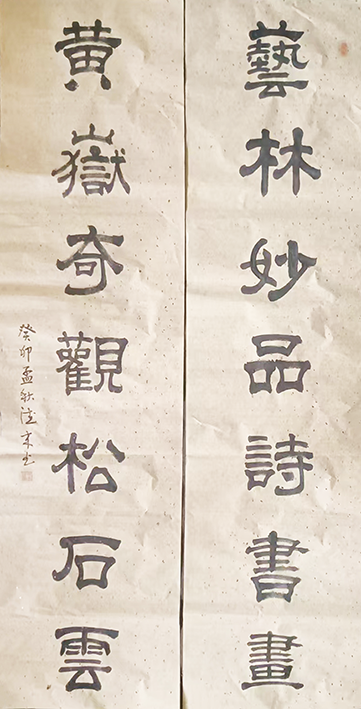 藝林妙品詩書畫
黃嶽奇觀松石雲
癸卯孟秋